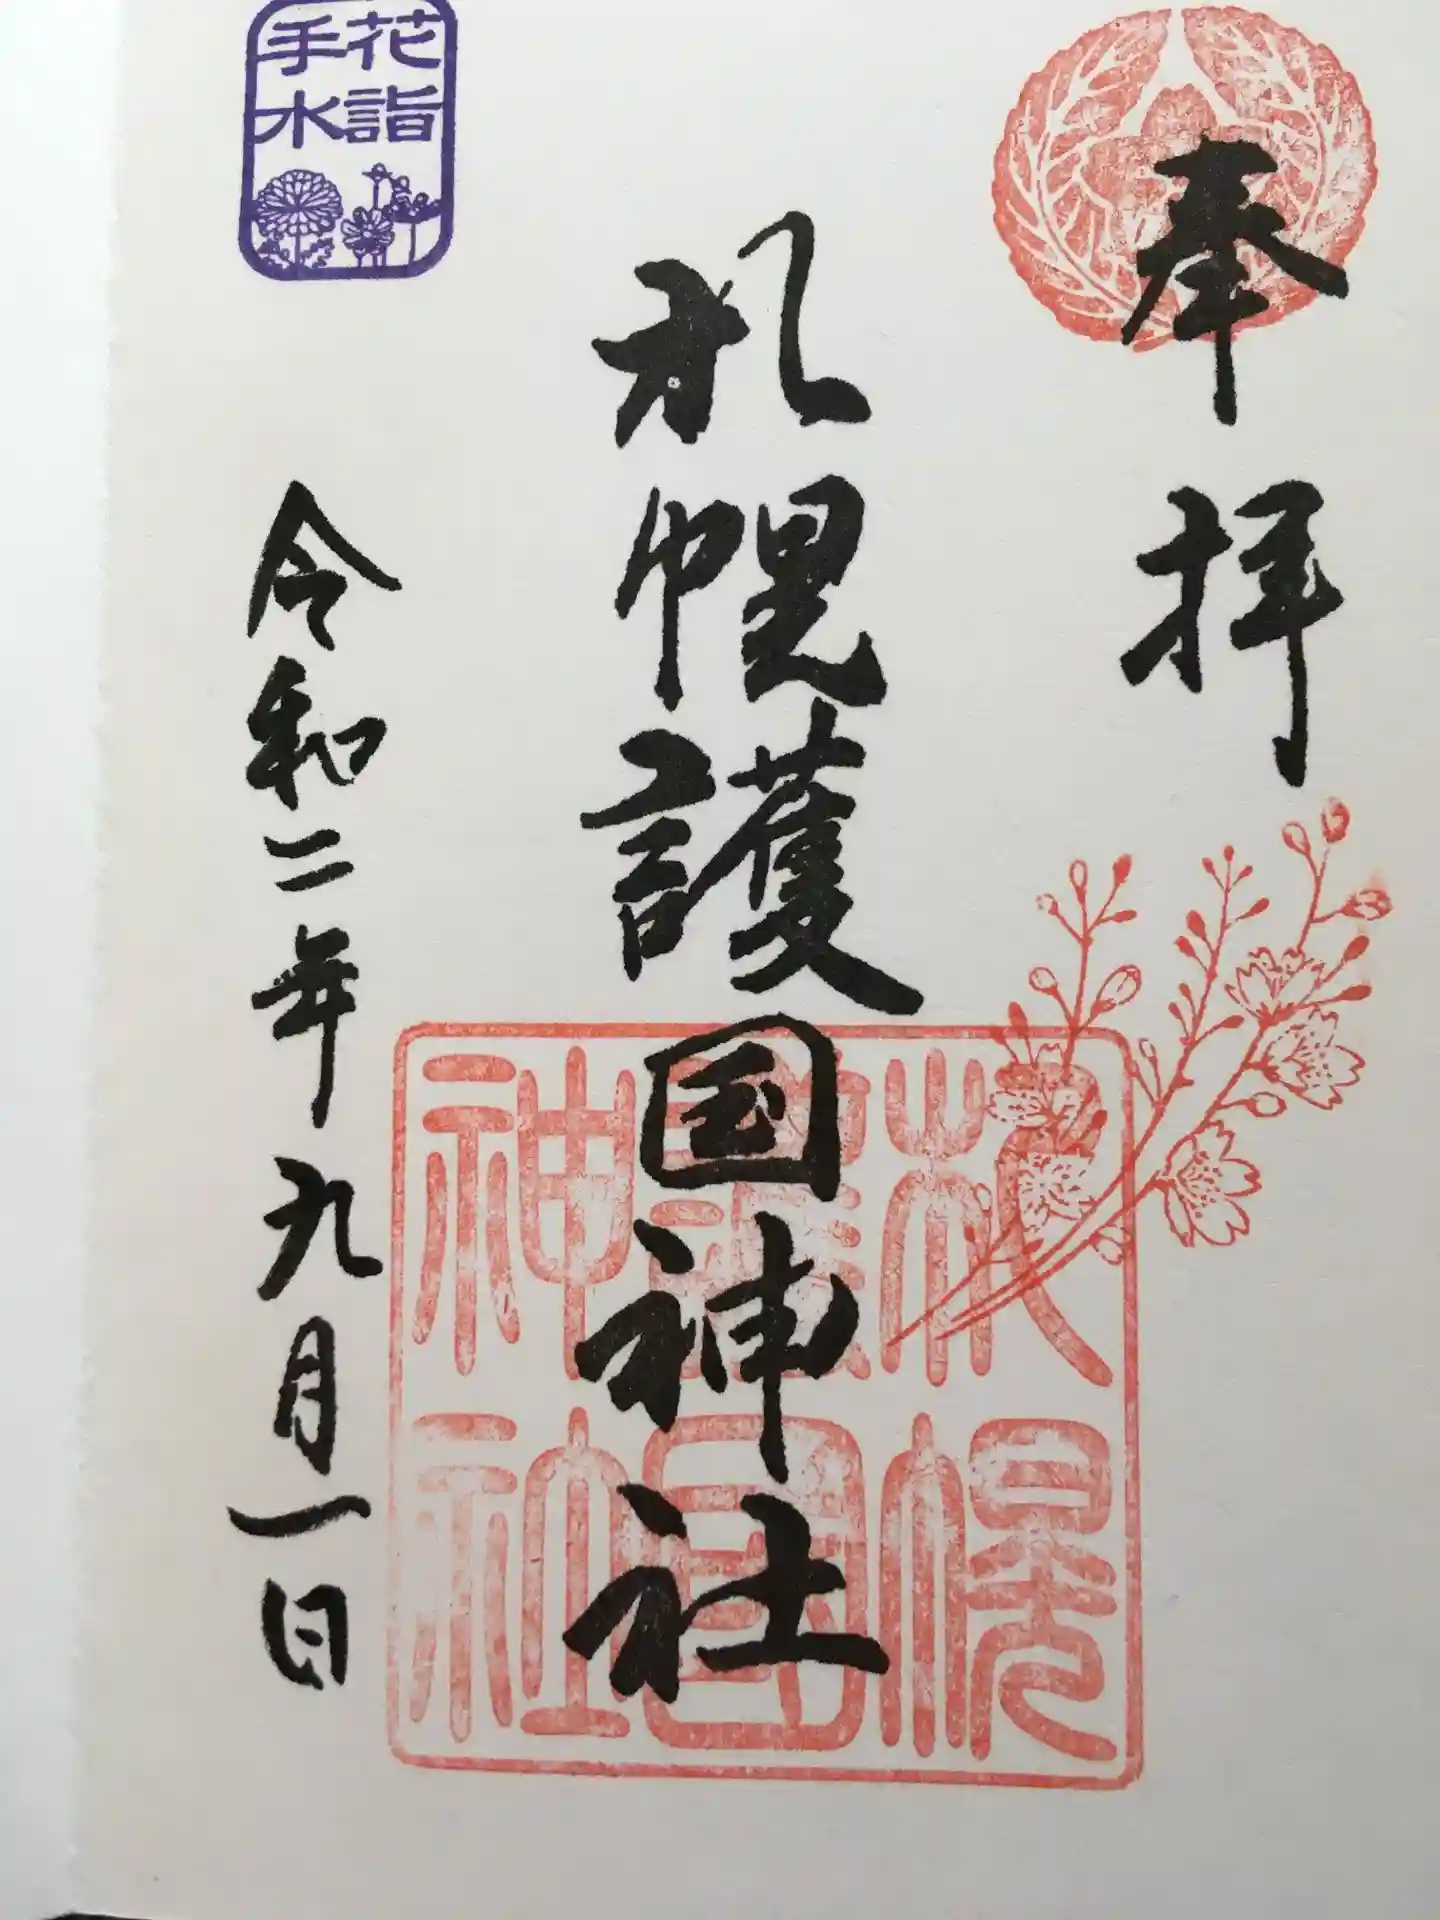 奉拝
札幌護国神社
令和二年九月一日
花詣
手水
札幌
護國
神社